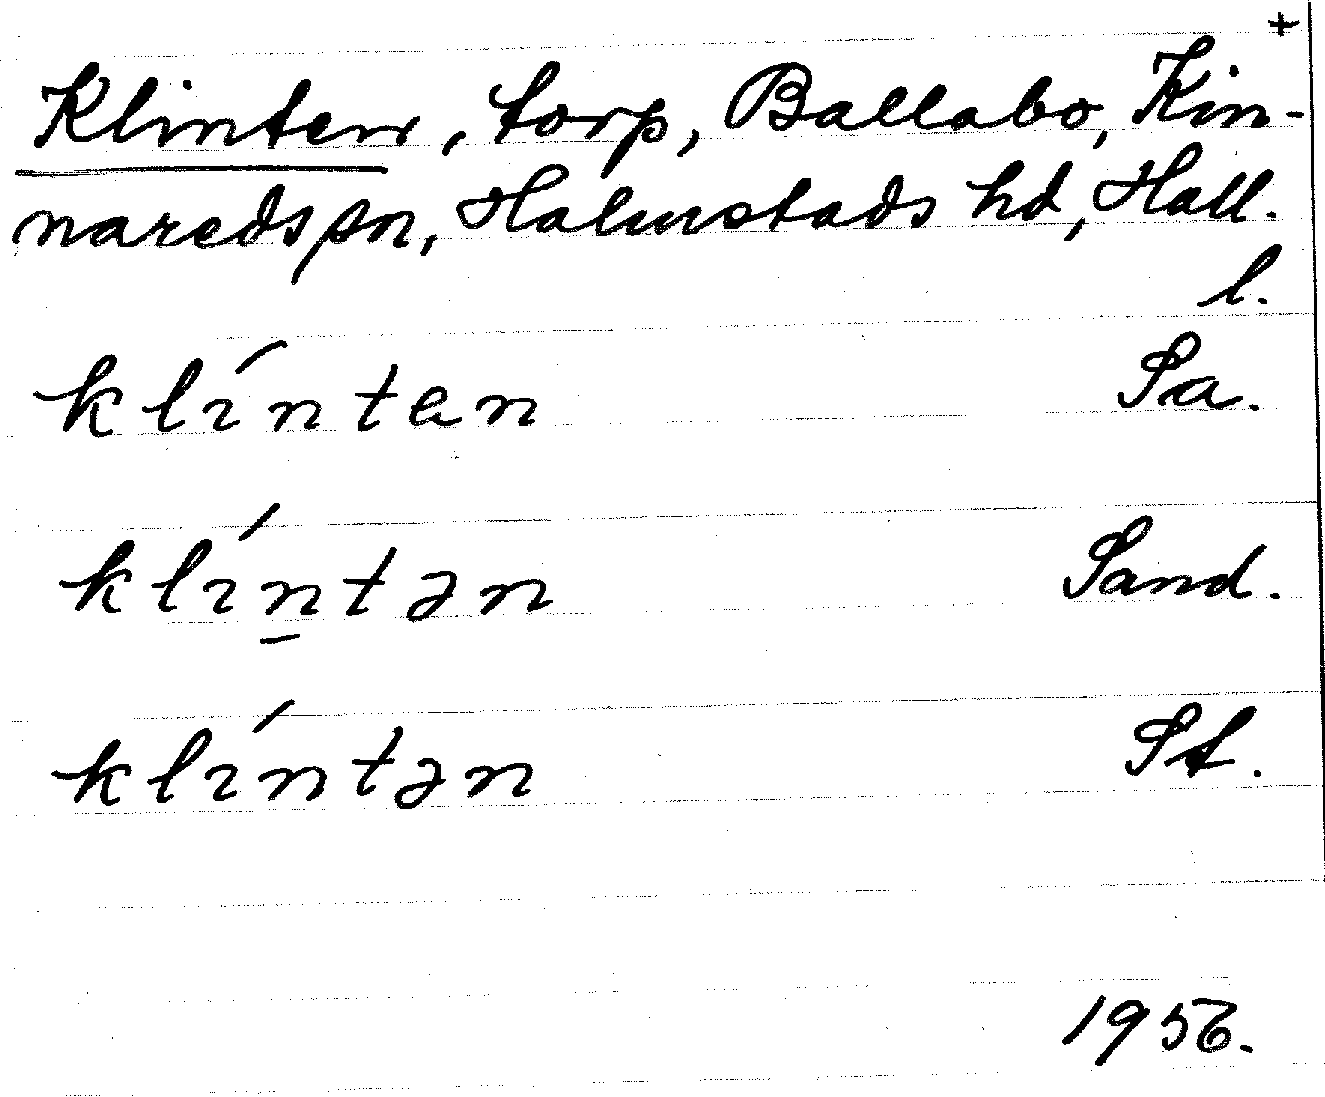 +
Klinten, torp, Ballabo, Kin-
nareds sn, Halmstads hd, Hall.
l.
klíntən Sa.
klíṉtən Sand.
klíntən St.
1956.